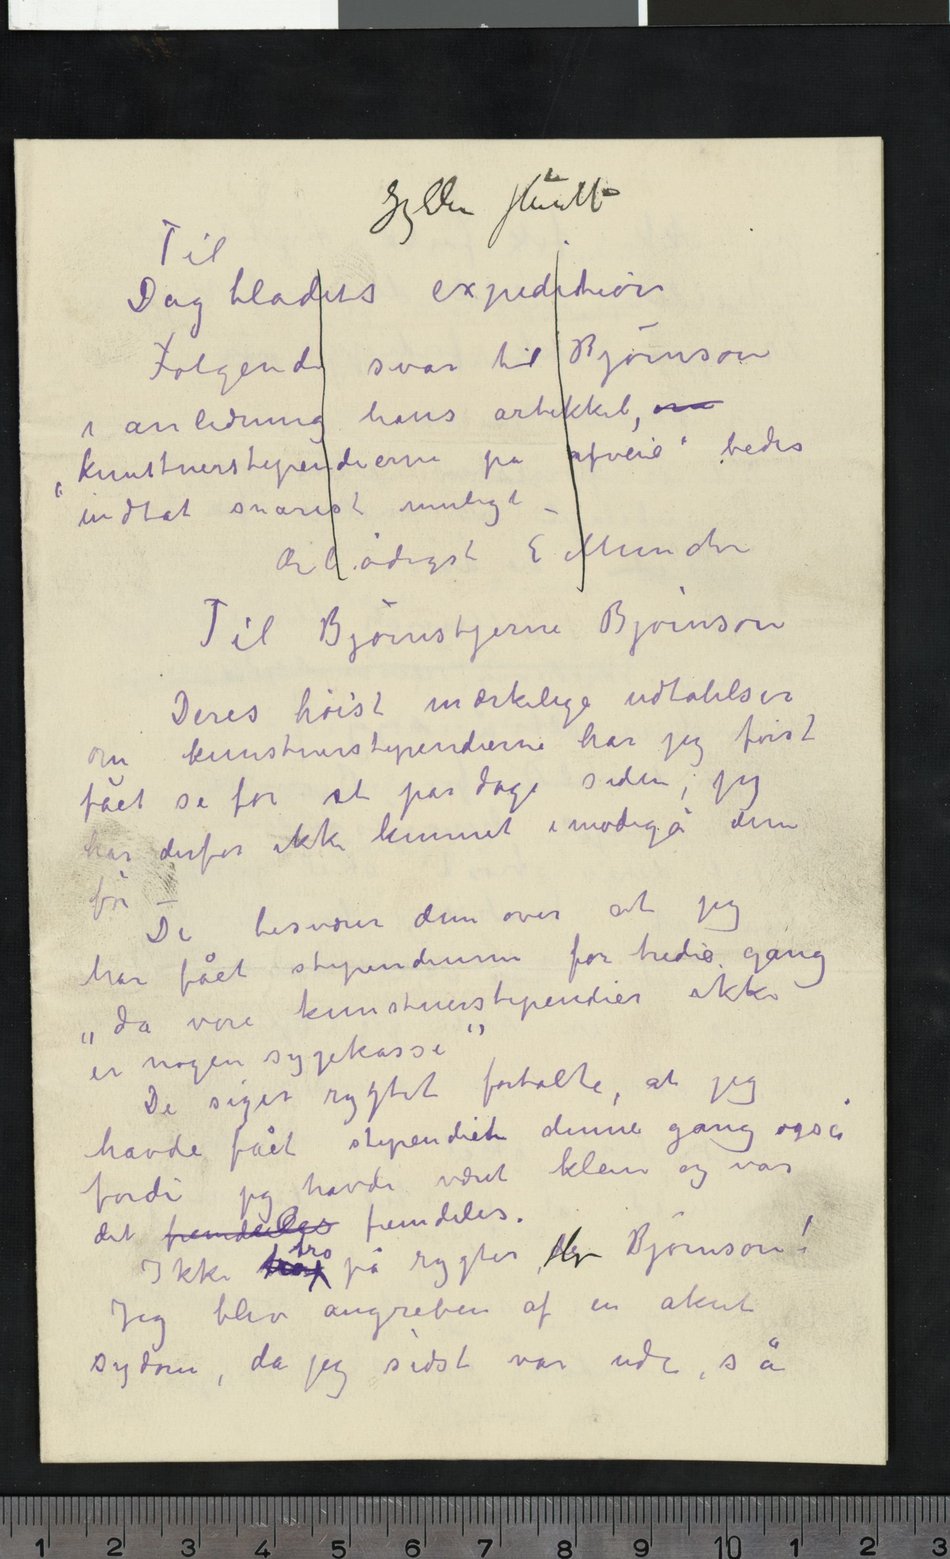 Til
Dagbladets expedition
Følgende svar til Bjørnson
i anledning hans artikkel, om
„kunstnerstipendierne på afveie" bedes
indtat snarest muligt –
Ærbødigst E Munch
Til Bjørnstjerne Bjørnson
Deres høist mærkelige udtalelser
om kunstnerstipendierne har jeg først
fået se for et par dage siden, jeg
har derfor ikke kunnet imødegå dem
før –
De besværer dem over at jeg
har fået stipendium for tredie gang
„da vore kunstnerstipendier ikke
er nogen sygekasse"
De siger rygtet fortalte, at jeg
havde fået stipendiet denne gang også
fordi jeg havde været klein og var
det fremdeles fremdeles.
Ikke tro på rygter, Hr Bjørnson!
Jeg blev angreben af en akut
sydom, da jeg sidst var ude, så